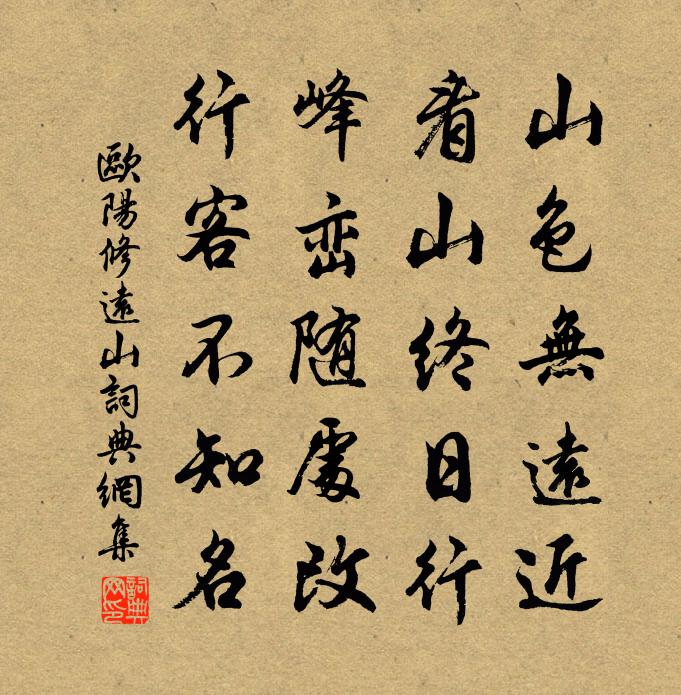 山色無遠近
看山終日行
峰巒随處改
行客不知名
歐陽修遠山詞典網集
詞典
网印